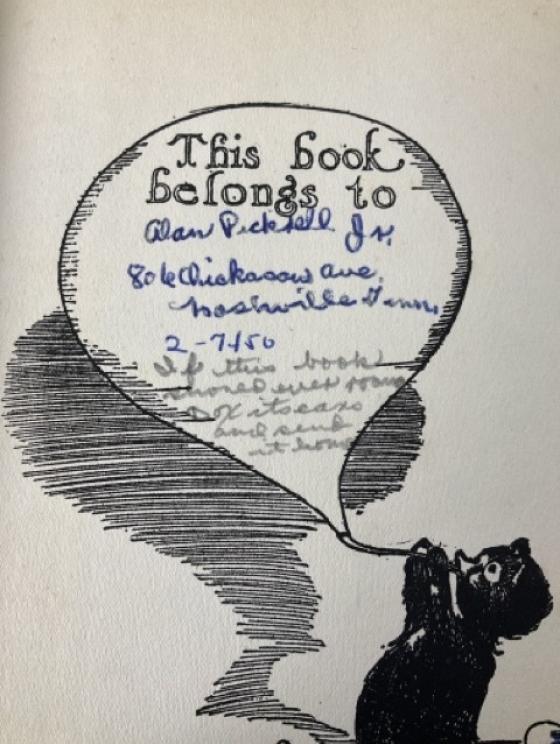 This book
belongs to
Alan Picktell Jr.
806 Chickasaw Ave,
Nashville Tenn.
2-7150
If this book
should ever roam
Box its ears
and send
it home